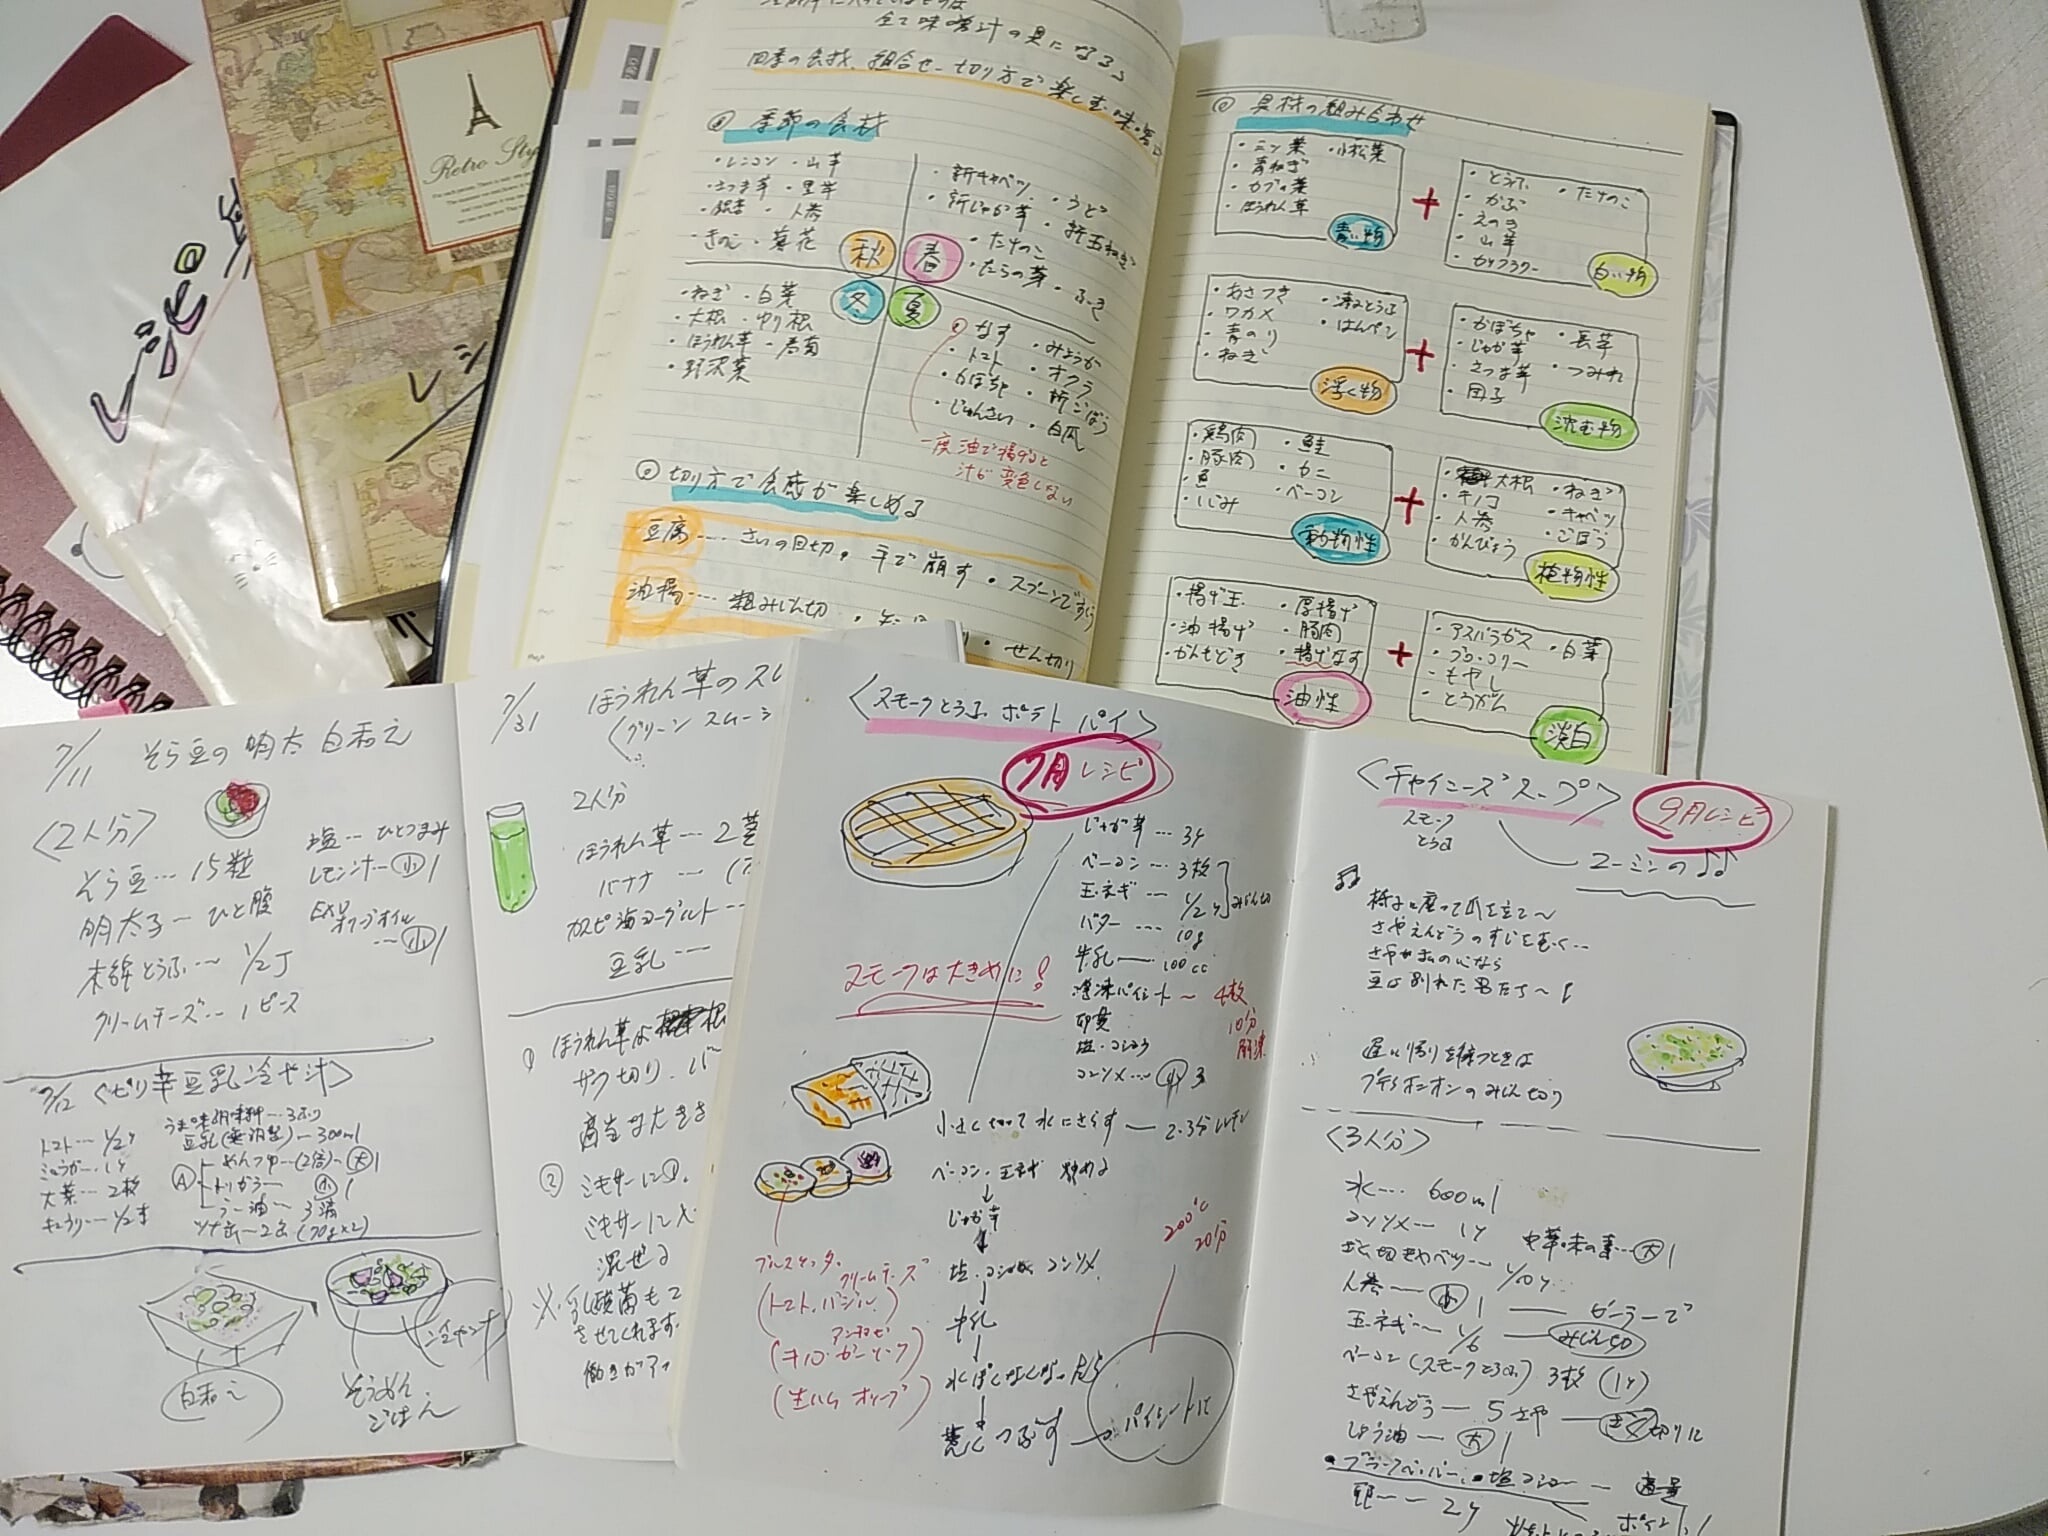 Retro Style
レシピ
全て味噌汁の具になる
四季の食材、組合せ、切り方で楽しむ味噌
季節の食材
・レンコン ・山芋
・さつま芋 ・里芋
・銀杏 ・人参
・きのこ ・菊花
秋
・新キャベツ ・うど
・新じゃが芋 ・新玉ねぎ
・たけのこ
・たらの芽 ・ふき
春
・ねぎ ・白菜
・大根 ・ゆり根
・ほうれん草 ・春菊
・野沢菜
冬
夏
・なす ・みょうが
・トマト ・オクラ
・かぼちゃ ・新ごぼう
・じゅんさい ・白瓜
一度油で揚げると
汁が変色しない
切り方で食感が楽しめる
豆腐…… さいの目切り、手で崩す・スプーンですくう
油揚…… 粗みじん切
・せん切り
具材の組み合わせ
・三ッ葉 ・小松菜
・青ねぎ
・カブの葉
・ほうれん草
青い物
+
・とうふ ・たけのこ
・かぶ
・えのき
・山芋
・カリフラワー
白い物
・あさつき ・凍みとうふ
・ワカメ ・はんぺン
・青のり
・ねぎ
浮く物
+
・かぼちゃ ・長芋
・じゃが芋
・さつま芋 ・つみれ
・団子
沈む物
・鶏肉 ・鮭
・豚肉 ・カニ
・魚 ・ベーコン
・しじみ
動物性
+
・大根 ・ねぎ
・キノコ ・キャベツ
・人参 ・ごぼう
・かんぴょう
植物性
・揚げ玉 ・厚揚げ
・油揚げ ・豚肉
・がんもどき ・揚げなす
油性
+
・アスパラガス ・白菜
・ブロッコリー
・もやし
・とうがん
淡白
7/11 そら豆の明太白和え
〈2人分〉
そら豆… 15粒
明太子ー ひと腹
木綿とうふ〜 1/2丁
クリームチーズ… 1ピース
塩… ひとつまみ
レモン汁ー 小1
EXVオリーブオイル
… 小1
7/12 〈ピリ辛豆乳冷や汁〉
トマト… 1/2ケ
みょうが… 1ケ
大葉… 2枚
キュウリー 1/2本
うま味調味料…3ふり
豆乳(無調整)ー300ml
A めんつゆー(2倍)ー大1
トリガラー 小1
ラー油ー 3滴
ツナ缶ー2缶(70g×2)
白和え
そうめん
ごはん
7/31 ほうれん草のスム
〈グリーンスムージ
2人分
ほうれん草…
バナナ …
カスピ海ヨーグルト…
豆乳……
① ほうれん草は 根
ザク切り、バ
適当な大きさ
② ミキサーに①、
ミキサーに入
混ぜる
※乳酸菌も
させてくれます。
働きがア
〈スモークとうふポテトパイ〉
7月レシピ
じゃが芋 … 3ケ
ベーコン … 3枚
玉ネギ … 1/2ケ
みじん切
バター … 10g
牛乳 … 100cc
冷凍パイシート 〜 4枚
10分
解凍
卵黄
塩・コショウ
コンソメ… 小3
スモークは大きめに!
小さく切って水にさらす ー 2・3分レンチン
ベーコン・玉ネギ 炒める
↓
じゃが芋
↓
塩・コショウ、コンソメ
↓
牛乳
↓
水ぽくなくなったら
↓
荒くつぶす
パイシートに
200℃
20分
ブルスケッタ
クリームチーズ
(トマト、バジル)
アンチョビ
(キノコ・ガーリック)
(生ハム オリーブ)
〈チャイニーズスープ〉
9月レシピ
スモーク
とうふ
ユーミンの♪♪
椅子に座って爪を立て〜
さやえんどうのすじをむく…
さやが私の心なら
豆は別れた男たち〜!
遅い帰りを待つときは
プチオニオンのみじん切り
〈3人分〉
水…. 600ml
コンソメー 1ケ
中華味の素…大1
ざく切キャベツー 1/10ケ
人参ー 小1 ー ピーラーで
玉ネギ〜 1/6 ー みじん切
ベーコン(スモークとうふ) 3枚 (1ケ)
さやえんどうー 5さや ー ざく切りに
しょう油ー 大1
・ブラックペッパー、・塩コショー ー 適量
卵ー 2ケ
ポイント!